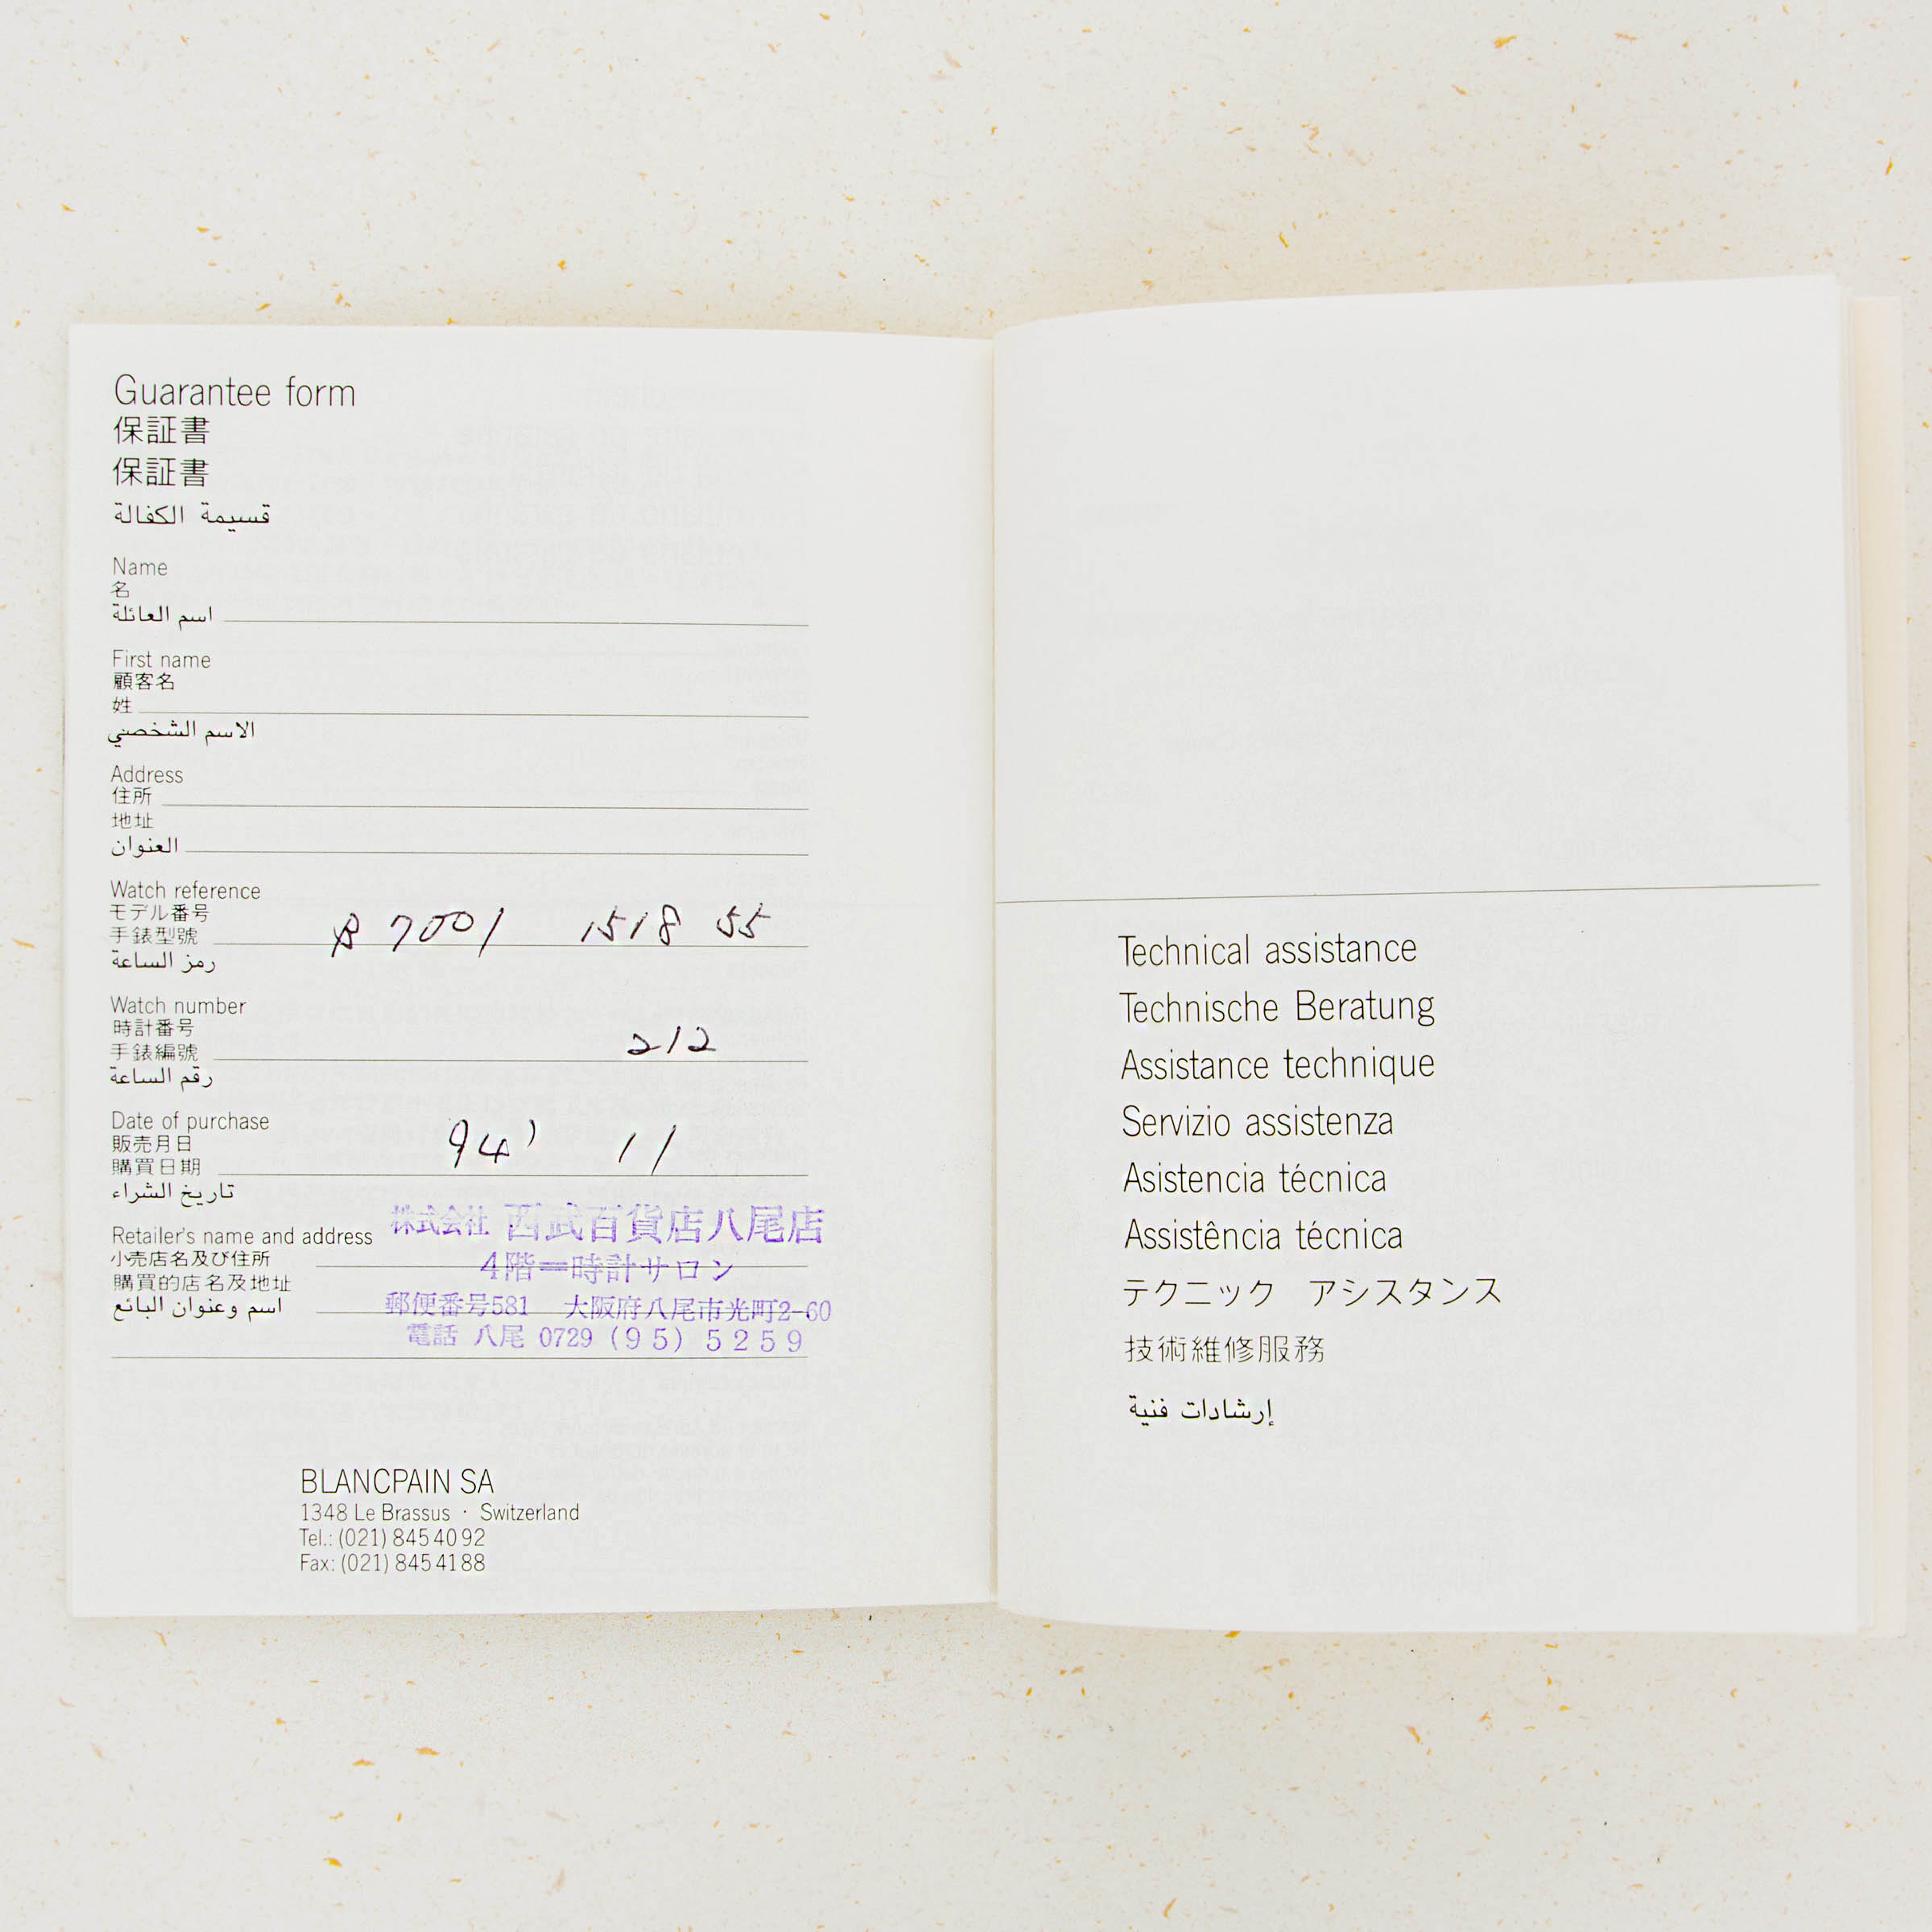 Guarantee form
保証書
保証書
قسيمة الكفالة
Name
名
اسم العائلة
First name
顧客名
姓
الاسم الشخصي
Address
住所
地址
العنوان
Watch reference
モデル番号
手錶型號
B 7001 1518 55
رمز الساعة
Watch number
時計番号
手錶編號
212
رقم الساعة
Date of purchase
販売月日
購買日期
94' 11
تاريخ الشراء
Retailer's name and address
小売店名及び住所
購買的店名及地址
اسم وعنوان البائع
株式会社 西武百貨店八尾店
4階=時計サロン
郵便番号581 大阪府八尾市光町2-60
電話 八尾 0729 (95) 5259
BLANCPAIN SA
1348 Le Brassus · Switzerland
Tel.: (021) 845 40 92
Fax: (021) 845 41 88
Technical assistance
Technische Beratung
Assistance technique
Servizio assistenza
Asistencia técnica
Assistência técnica
テクニック アシスタンス
技術維修服務
إرشادات فنية